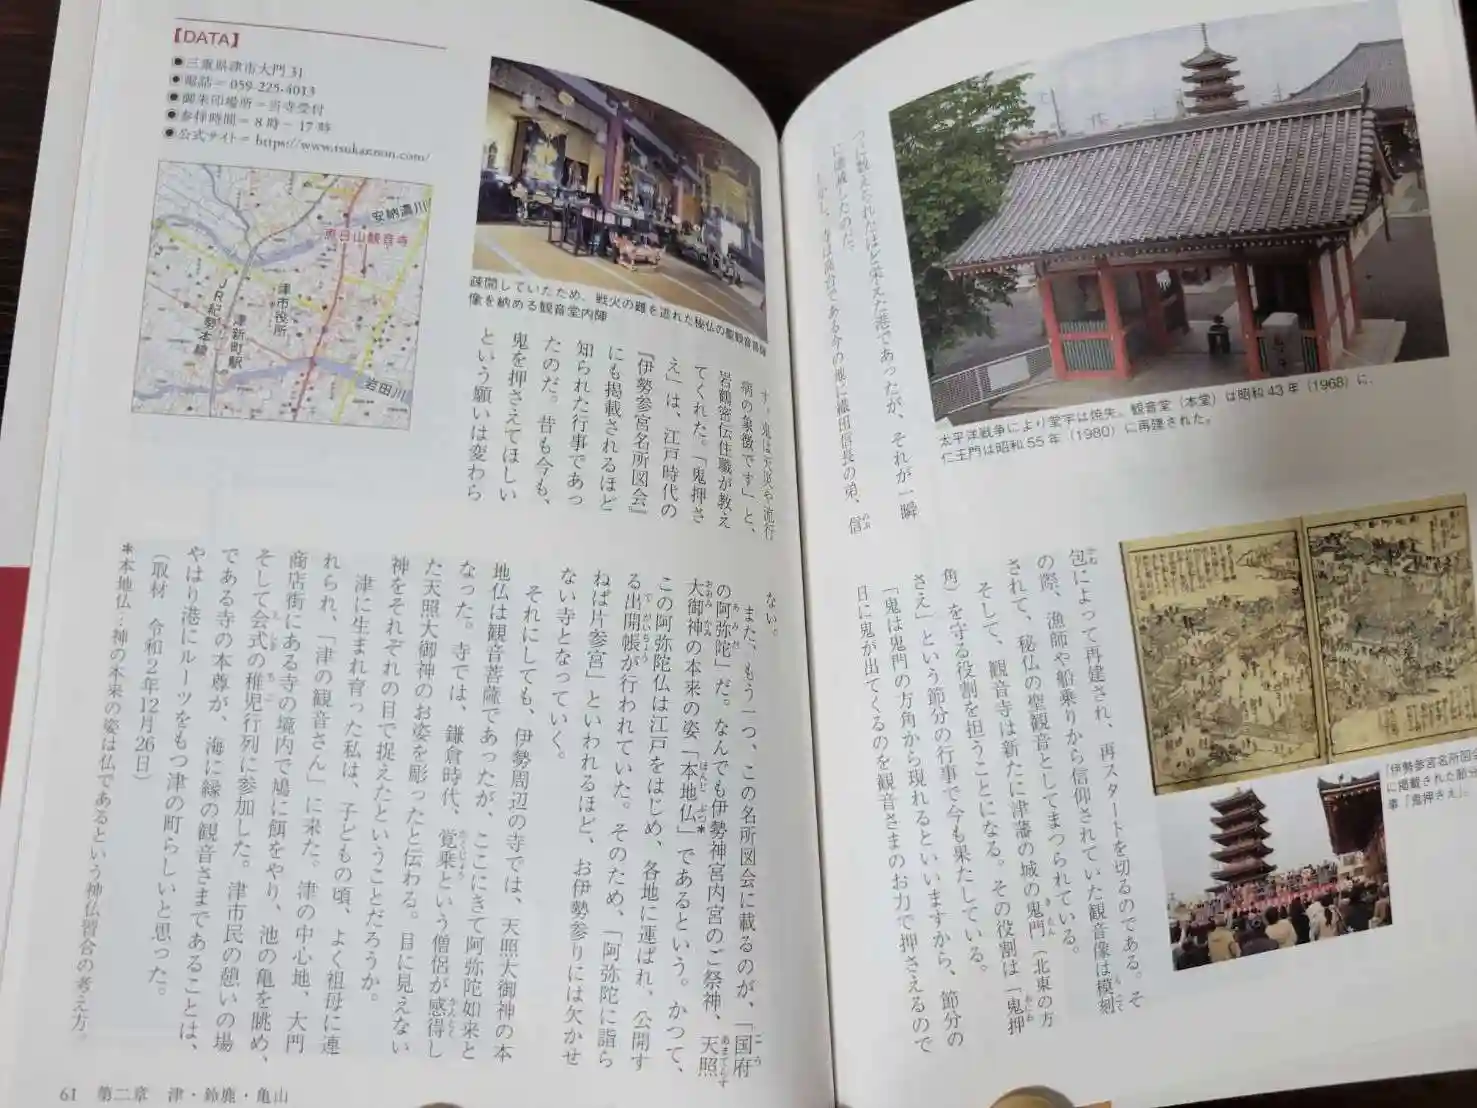 太平洋戦争により堂宇は焼失。観音堂（本堂）は昭和43年（1968）に、
仁王門は昭和55年（1980）に再建された。
に壊滅したのだ。
しかし、寺は高台である今の地に織田信長の弟、信
包によって再建され、再スタートを切るのである。そ
の際、漁師や船乗りから信仰されていた観音像は模刻
されて、秘仏の聖観音としてまつられている。
そして、観音寺は新たに津藩の城の鬼門（北東の方
角）を守る役割を担うことになる。その役割は「鬼押
さえ」という節分の行事で今も果たしている。
「鬼は鬼門の方角から現れるといいますから、節分の
日に鬼が出てくるのを観音さまのお力で押さえるので
「伊勢参宮名所図会
に掲載された節分
事「鬼押さえ」
す。鬼は天災や流行
病の象徴です」と、
岩鶴密伝住職が教え
てくれた。「鬼押さ
え」は、江戸時代の
『伊勢参宮名所図会』
にも掲載されるほど
知られた行事であっ
たのだ。昔も今も、
鬼を押さえてほしい
という願いは変わら
ない。
また、もう一つ、この名所図会に載るのが、「国府
の阿弥陀」だ。なんでも伊勢神宮内宮のご祭神、天照
大御神の本来の姿「本地仏」*であるという。かつて、
この阿弥陀仏は江戸をはじめ、各地に運ばれ、公開す
る出開帳が行われていた。そのため、「阿弥陀に詣ら
ねば片参宮」といわれるほど、お伊勢参りには欠かせ
ない寺となっていく。
それにしても、伊勢周辺の寺では、天照大御神の本
地仏は観音菩薩であったが、ここにきて阿弥陀如来と
なった。寺では、鎌倉時代、覚乗という僧侶が感得し
た天照大御神のお姿を彫ったと伝わる。目に見えない
神をそれぞれの目で捉えたということだろうか。
津に生まれ育った私は、子どもの頃、よく祖母に連
れられ、「津の観音さん」に来た。津の中心地、大門
商店街にある寺の境内で鳩に餌をやり、池の亀を眺め、
そして会式の稚児行列に参加した。津市民の憩いの場
である寺の本尊が、海に縁の観音さまであることは、
やはり港にルーツをもつ津の町らしいと思った。
（取材 令和2年12月26日）
*本地仏：神の本来の姿は仏であるという神仏習合の考え方。
疎開していたため、戦火の難を逃れた秘仏の聖観音菩薩
像を納める観音堂内陣
【DATA】
●三重県津市大門31
●電話＝059-225-4013
●御朱印場所＝当寺受付
●参拝時間＝8時〜17時
●公式サイト＝https://www.tsukannon.com/
安濃川
恵日山観音寺
津市役所
津新町駅
JR紀勢本線
岩田川
61 第二章 津・鈴鹿・亀山